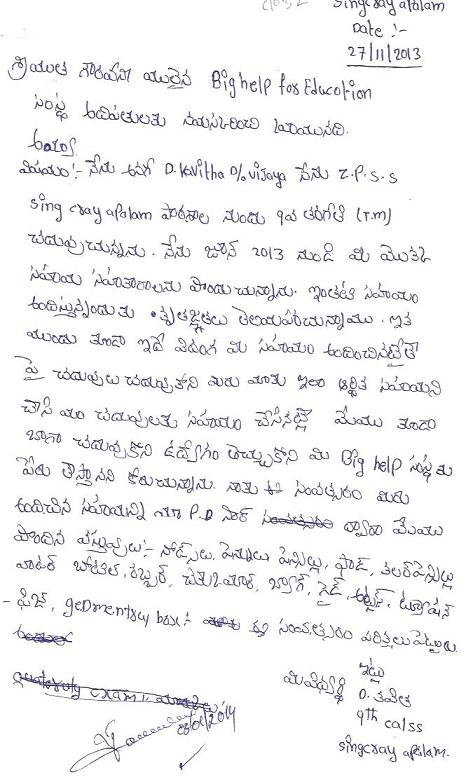 Singcrayapalam
Date :-
27/11/2013
శ్రీయుత గౌరవనీ యులైన Big help for Education
సంస్థ అదిపతులకు నమస్కరించి వ్రాయునది.
విషయం :- నేను అనగా D. Kavitha D/o vijaya నేను Z.P.S.S
Sing cray apalam పాఠశాల నుండు 9వ తరగతి (T.M)
చదువుచున్నను. నేను జూన్ 2013 నుండి మి మొదటి
సహాయ సహకారాలను పొందుచున్నాను. ఇంతటి సహాయం
అందిస్తున్నందుకు కృతజ్ఞతలు తెలియపరచున్నాము. ఇక
ముందు కూడా ఇదే విదంగ మి సహాయం అందించినట్లైతే
పై చదువులు చదువుకొని మరు మాకు ఇలా ఆర్థిక సహయని
చేసి మా చదువులకు సహాయం చేసినట్లే మేము కూడా
బాగా చదువుకొని ఉద్యోగం తెచ్చుకొని మి Big help సంస్థకు
పేరు తెస్తానని కోరుచున్నాను. నాకు ఈ సంవత్సరం మీరు
అందించిన సహయాన్ని మా P.D సార్ ద్వారా మేము
పొందిన వస్తువులు :- నోట్స్‌లు, పెన్నులు పెన్సిల్లు, ప్యాడ్, కలర్‌పెన్సిల్లు
వాటర్ బాటిల్, రబ్బర్, చెక్‌మార్, బ్యాగ్, గైడ్, ట్యూషన్
- ఫిజ్, gedmentary box :- ఈ సంవత్సరం పరిక్షలు పెట్టారు.
ఇట్లు
మి విధ్యార్థి D. కవిత
9th calss
singcray apalam.
08/01/2014